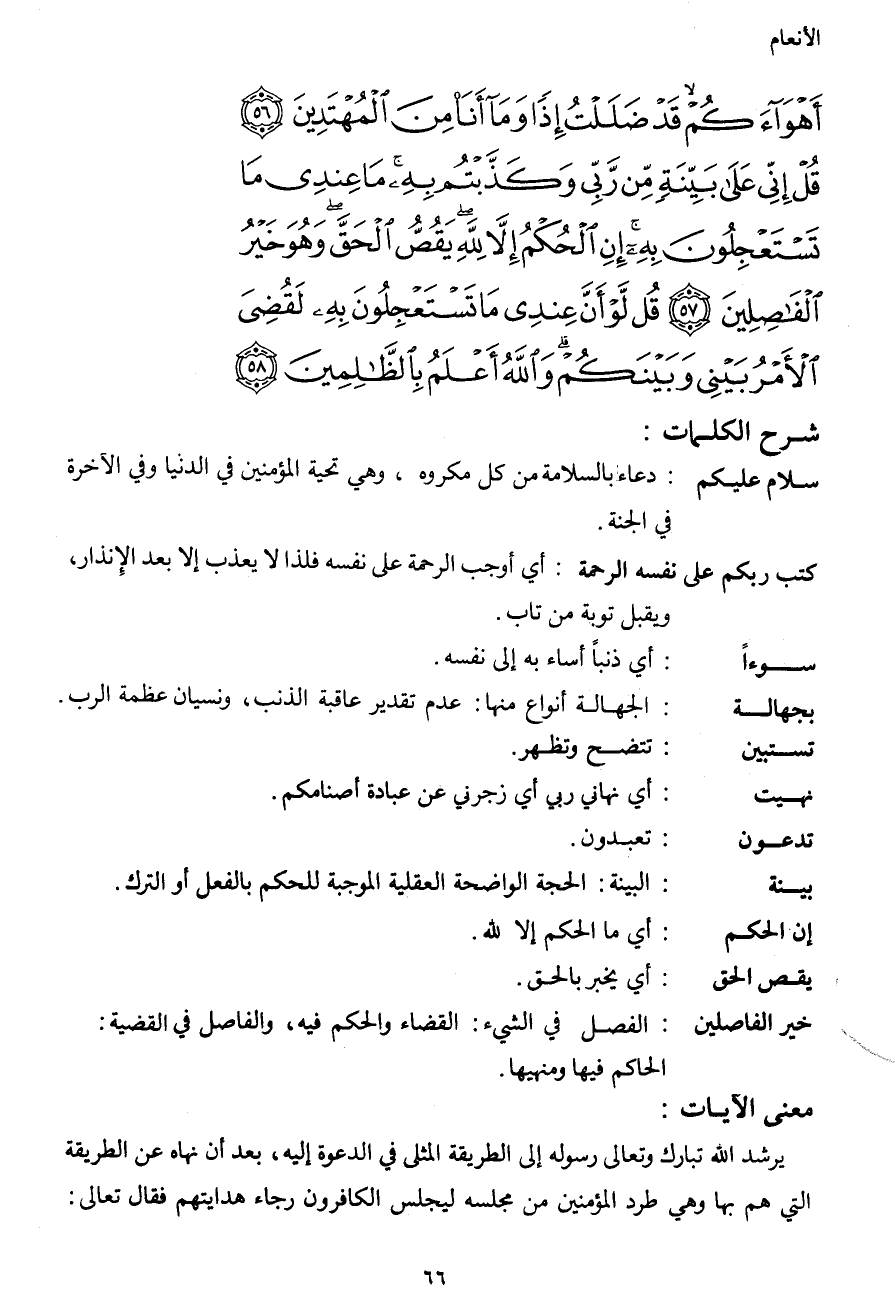 الأنعام
أَهْوَآءَكُمْ ۙ قَدْ ضَلَلْتُ إِذًا وَمَآ أَنَا۠ مِنَ ٱلْمُهْتَدِينَ ﴿٥٦﴾
قُلْ إِنِّى عَلَىٰ بَيِّنَةٍ مِّن رَّبِّى وَكَذَّبْتُم بِهِۦ ۚ مَا عِندِى مَا
تَسْتَعْجِلُونَ بِهِۦٓ ۚ إِنِ ٱلْحُكْمُ إِلَّا لِلَّهِ ۖ يَقُصُّ ٱلْحَقَّ ۖ وَهُوَ خَيْرُ
ٱلْفَـٰصِلِينَ ﴿٥٧﴾ قُل لَّوْ أَنَّ عِندِى مَا تَسْتَعْجِلُونَ بِهِۦ لَقُضِىَ
ٱلْأَمْرُ بَيْنِى وَبَيْنَكُمْ ۗ وَٱللَّهُ أَعْلَمُ بِٱلظَّـٰلِمِينَ ﴿٥٨﴾
شرح الكلمات :
سلام عليكم : دعاء بالسلامة من كل مكروه ، وهي تحية المؤمنين في الدنيا وفي الآخرة
في الجنة .
كتب ربكم على نفسه الرحمة : أي أوجب الرحمة على نفسه فلذا لا يعذب إلا بعد الإنذار،
ويقبل توبة من تاب .
سوءاً : أي ذنباً أساء به إلى نفسه .
بجهالة : الجهالة أنواع منها : عدم تقدير عاقبة الذنب، ونسيان عظمة الرب .
تستبين : تتضح وتظهر .
نهيت : أي نهاني ربي أي زجرني عن عبادة أصنامكم .
تدعون : تعبدون .
بينة : البينة : الحجة الواضحة العقلية الموجبة للحكم بالفعل أو الترك .
إن الحكم : أي ما الحكم إلا لله .
يقص الحق : أي يخبر بالحق .
خير الفاصلين : الفصل في الشيء : القضاء والحكم فيه، والفاصل في القضية :
الحاكم فيها ومنهيها .
معنى الآيات :
يرشد الله تبارك وتعالى رسوله إلى الطريقة المثلى في الدعوة إليه، بعد أن نهاه عن الطريقة
التي هم بها وهي طرد المؤمنين من مجلسه ليجلس الكافرون رجاء هدايتهم فقال تعالى :
٦٦